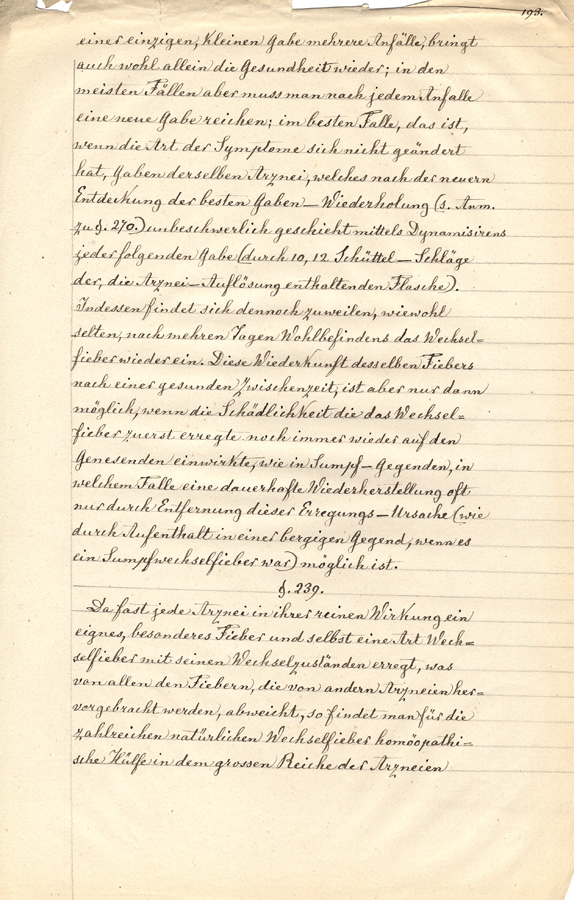 193.
einer einzigen, kleinen Gabe mehrere Anfälle, bringt
auch wohl allein die Gesundheit wieder; in den
meisten Fällen aber muss man nach jedem Anfalle
eine neue Gabe reichen; im besten Falle, das ist,
wenn die Art der Symptome sich nicht geändert
hat, Gaben derselben Arznei, welches nach der neuern
Entdeckung der besten Gaben–Wiederholung (s. Anm.
zu §. 270.) unbeschwerlich geschieht mittels Dynamisirens
jeder folgenden Gabe (durch 10, 12 Schüttel–Schläge
der, die Arznei–Auflösung enthaltenden Flasche).
Indessen findet sich dennoch zuweilen, wiewohl
selten, nach mehren Tagen Wohlbefindens das Wechsel=
fieber wieder ein. Diese Wiederkunft desselben Fiebers
nach einer gesunden Zwischenzeit, ist aber nur dann
möglich, wenn die Schädlichkeit die das Wechsel=
fieber zuerst erregte noch immer wieder auf den
Genesenden einwirkte, wie in Sumpf–Gegenden, in
welchem Falle eine dauerhafte Wiederherstellung oft
nur durch Entfernung dieser Erregungs–Ursache (wie
durch Aufenthalt in einer bergigen Gegend, wenn es
ein Sumpfwechselfieber war) möglich ist.
§. 239.
Da fast jede Arznei in ihrer reinen Wirkung ein
eignes, besonderes Fieber und selbst eine Art Wech=
selfieber mit seinen Wechselzuständen erregt, was
von allen den Fiebern, die von andern Arzneien her=
vorgebracht werden, abweicht, so findet man für die
zahlreichen natürlichen Wechselfieber homöopathi=
sche Hülfe in dem grossen Reiche der Arzneien